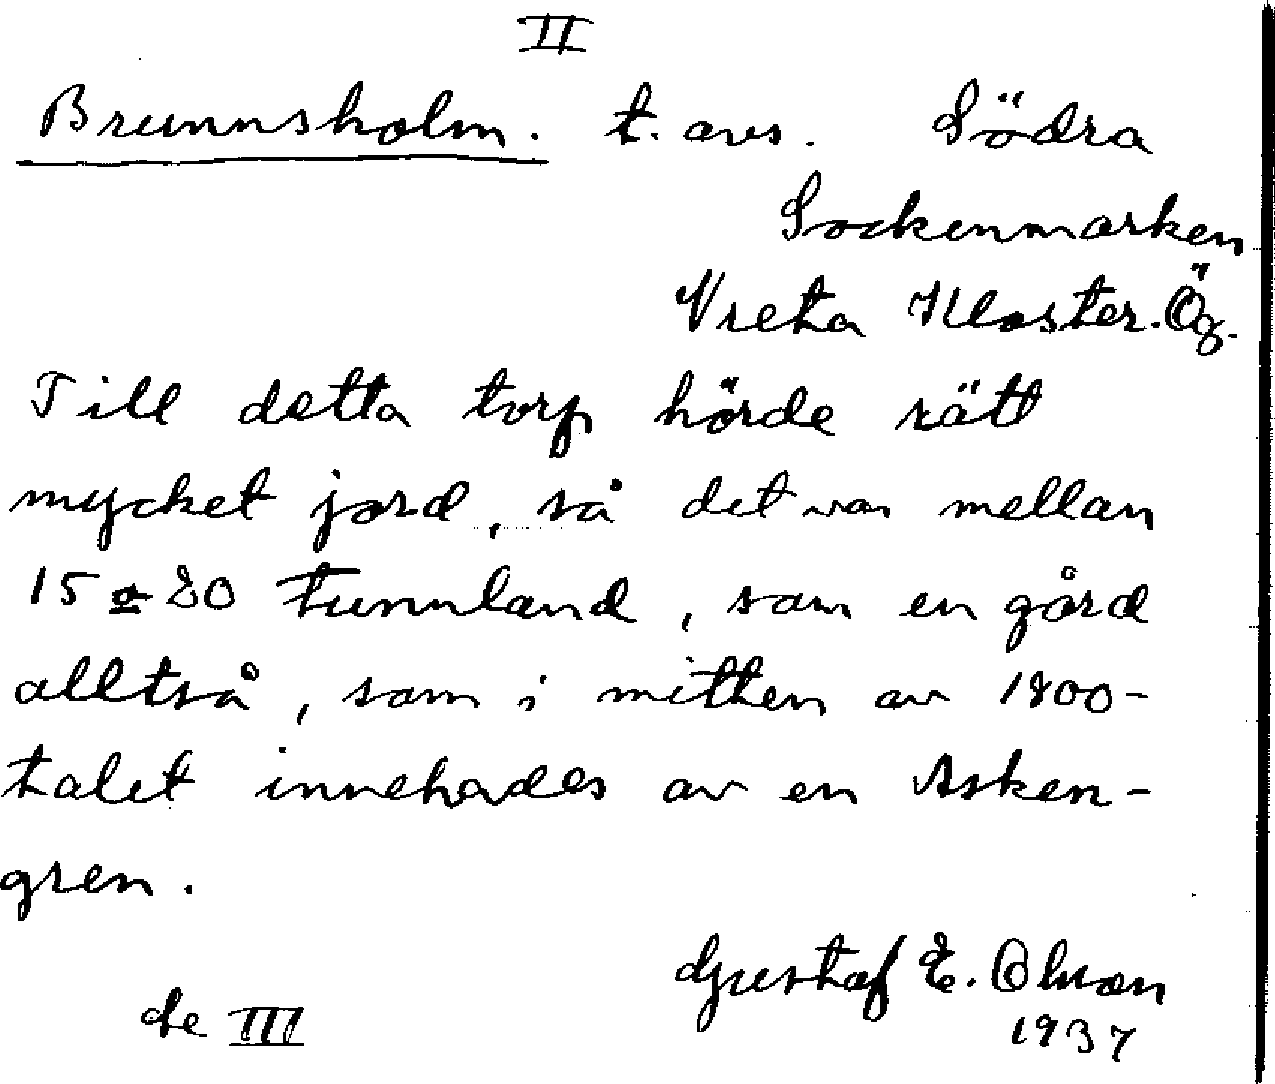 II
Brunnsholm. t. avs. Södra
Sockenmarken
Vreta Kloster. Ög.
Till detta torp hörde rätt
mycket jord, så det var mellan
15 a 20 tunnland, som en gård
alltså, som i mitten av 1800-
talet innehades av en Asken-
gren.
Gustaf E. Olsson
1937
Se III